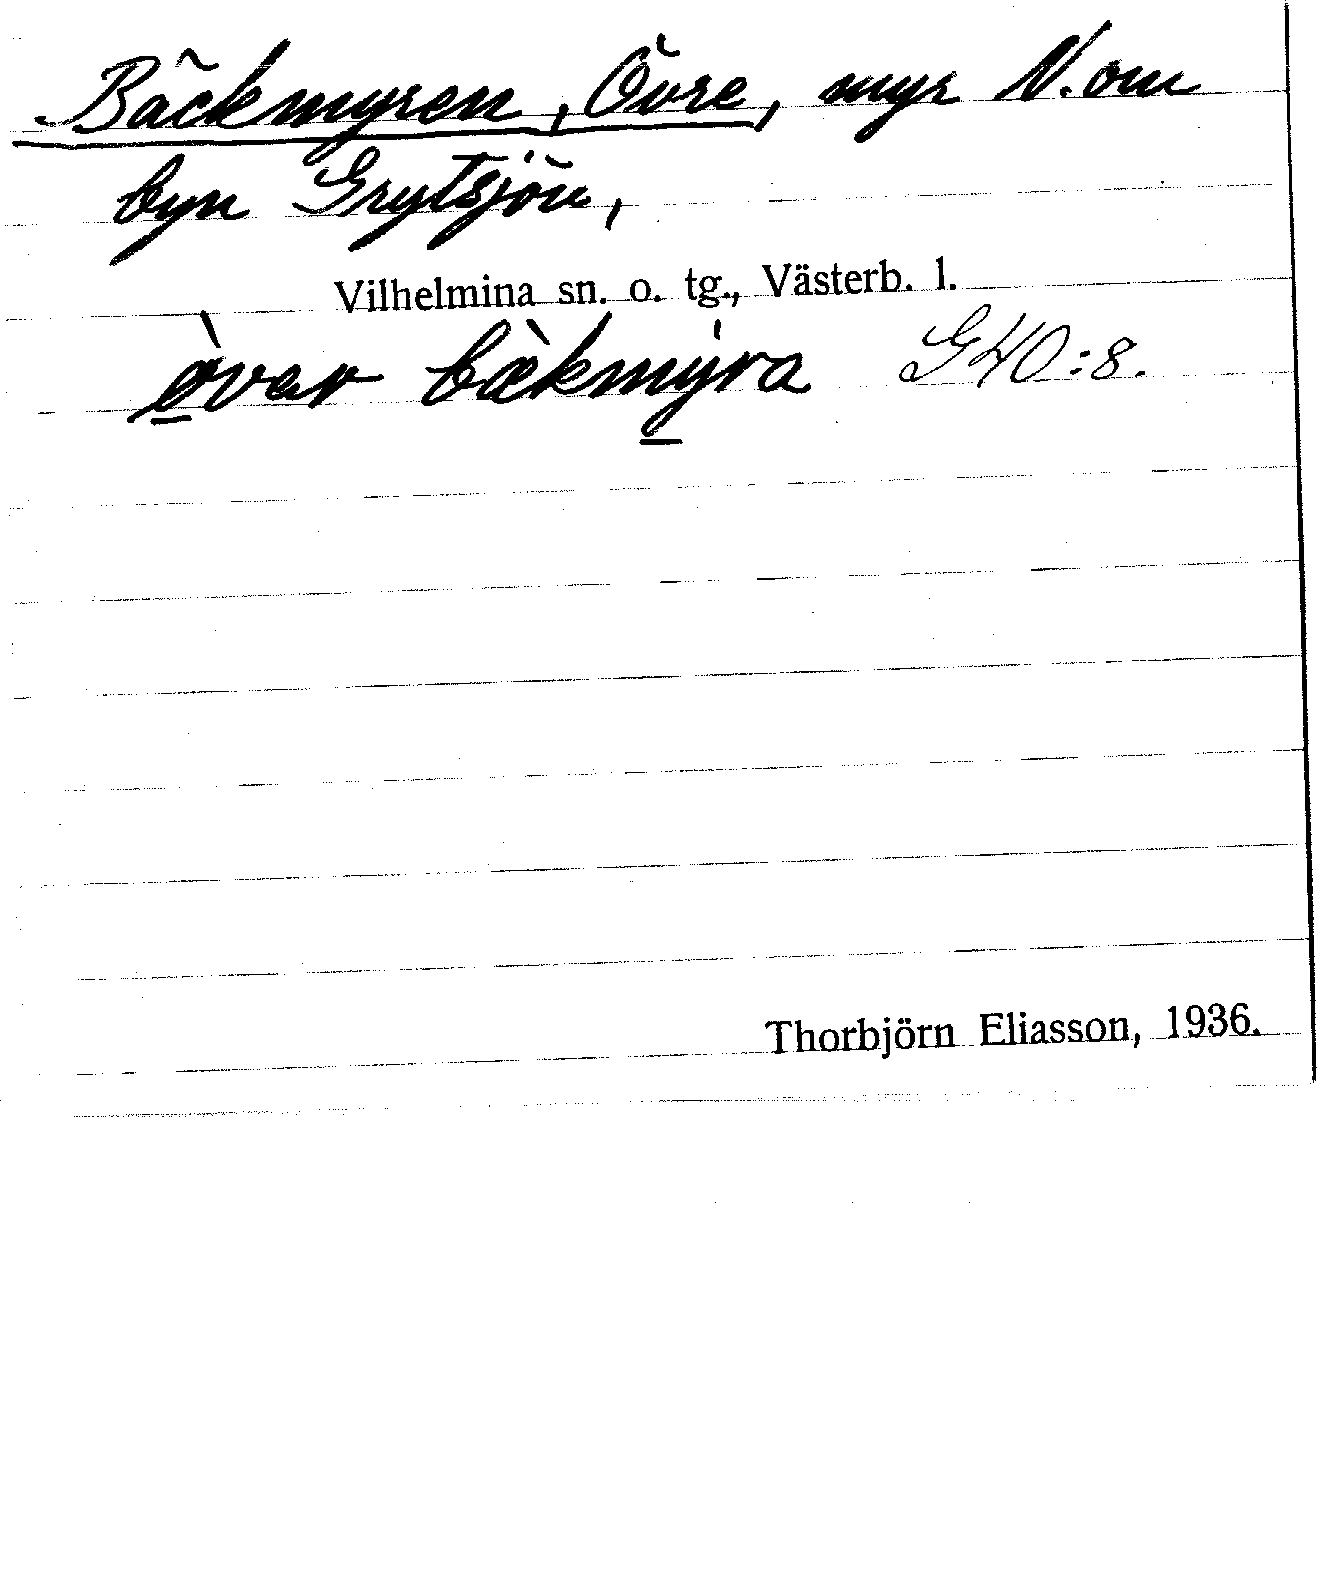 Bäckmyren, Övre, myr N. om
byn Grytsjön,
Vilhelmina sn. o. tg., Västerb. l.
ø̠̀var bæ̀kmy̠̍ra G40:8.
Thorbjörn Eliasson, 1936.